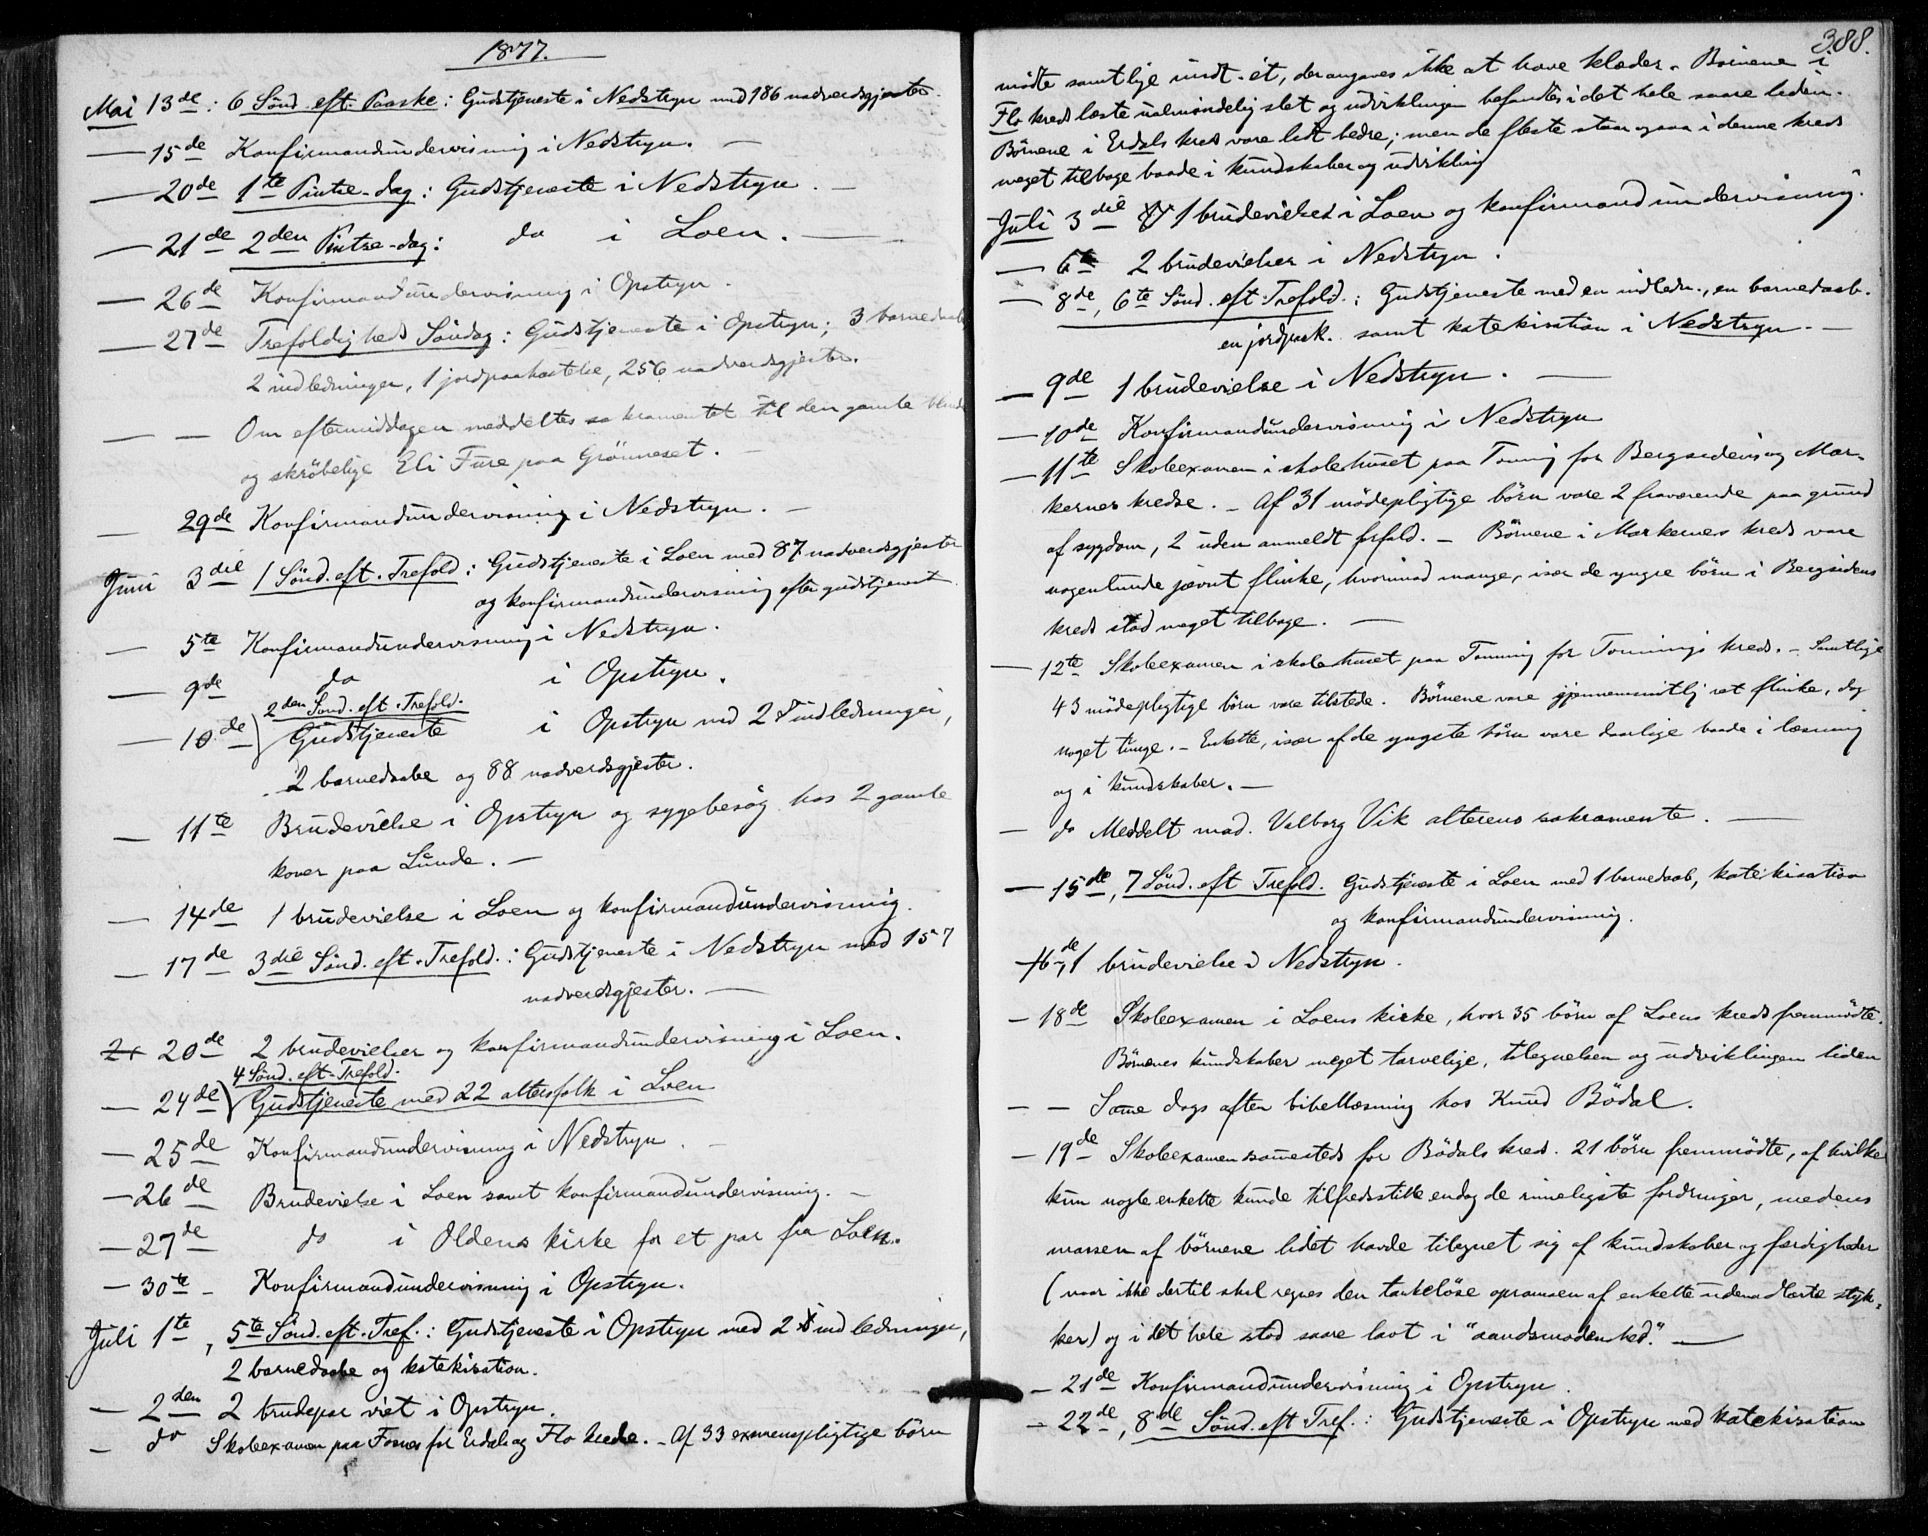 1877.
Mai 13de: 6 Sönd. eft. Paaske: Gudstjeneste i Nedstryn med 186 nadverdsgjester.
— 15de Konfirmandundervisning i Nedstryn. —
— 20de 1te Pintse-dag: Gudstjeneste i Nedstryn. —
— 21de 2den Pintse-dag: do i Loen. —
— 26de Konfirmandundervisning i Opstryn.
— 27de Trefoldigheds Söndag: Gudstjeneste i Opstryn; 3 barnedaabe
2 indledninger, 1 jordpaakastelse, 256 nadverdsgjester.
— — Om eftermiddagen meddeltes sakramentet til den gamle blinde
og skröbelige Eli Fure paa Grönneset. —
— 29de Konfirmandundervisning i Nedstryn. —
Juni 3die 1 Sönd. eft. Trefold: Gudstjeneste i Loen med 87 nadverdsgjester
og konfirmandundervisning efter gudstjenest
— 5te Konfirmandundervisning i Nedstryn.
— 9de do i Opstryn.
2den Sönd. eft. Trefold.
— 10de Gudstjeneste i Opstryn med 2 indledninger,
2 barnedaabe og 88 nadverdsgjester.
— 11te Brudevielse i Opstryn og sygebesög hos 2 gamle
koner paa Lunde. —
— 14de 1 brudevielse i Loen og konfirmandundervisning.
— 17de 3die Sönd. eft. Trefold.: Gudstjeneste i Nedstryn med 157
nadverdsgjester. —
20de 2 brudevielser og konfirmandundervisning i Loen.
4 Sönd. eft. Trefold.
— 24de Gudstjeneste med 22 altersfolk i Loen
— 25de Konfirmandundervisning i Nedstryn. —
— 26de Brudevielse i Loen samt konfirmandundervisning. —
— 27de do i Oldens kirke for et par fra Loen.
— 30te — Konfirmandundervisning i Opstryn.
Juli 1te, 5te Sönd. eft. Tref.: Gudstjeneste i Opstryn med 2 indledninger,
2 barnedaabe og katekisation.
— 2den 2 brudepar viet i Opstryn.
— do Skoleexamen paa Fosnes for Erdals og Flo kredse. — Af 33 examenspligtige börn
388.
mödte samtlige undt. ét, der angaves ikke at have klæder. Börnene i
Flo kreds læste ualmindelig slet og udviklingen befandtes i det hele saare liden.
Börnene i Erdals kreds vare lidt bedre; men de fleste staar ogsaa i denne kreds
meget tilbage baade i kundskaber og udvikling
Juli 3die 1 brudevielse i Loen og konfirmandundervisning.
— 6te 2 brudevielser i Nedstryn.
— 8de, 6te Sönd. eft. Trefold.: Gudstjeneste med en indledn., en barnedaab.
en jordpaak. samt katekisation i Nedstryn. —
— 9de 1 brudevielse i Nedstryn. —
— 10de Konfirmandundervisning i Nedstryn
— 11te Skoleexamen i skolehuset paa Tonning for Bergsidens og Mar-
kernes kredse. — Af 31 mödepligtige börn vare 2 fraværende paa grund
af sygdom, 2 uden anmeldt forfald. — Börnene i Markernes kreds vare
nogenlunde jævnt flinke, hvorimod mange, især de yngre börn i Bergsidens
kreds stod meget tilbage. —
— 12te Skoleexamen i skolehuset paa Tonning for Tonnings kreds. — Samtlige
43 mödepligtige börn vare tilstede. Börnene vare gjennemsnitlig ret flinke, dog
noget tunge. — Enkelte, især af de yngste börn vare daarlige baade i læsning
og i kundskaber. —
— do Meddelt mad. Valborg Vik alterens sakramente. —
— 15de, 7 Sönd. eft Trefold. Gudstjeneste i Loen med 1 barnedaab, katekisation
og konfirmandundervisning.
16de, 1 brudevielse i Nedstryn.
— 18de Skoleexamen i Loens kirke, hvor 35 börn af Loens kreds fremmödte.
Börnenes kundskaber meget tarvelige, tilegnelsen og udviklingen liden
— — Same dags aften bibellæsning hos Knud Bödal.
— 19de Skoleexamen sammesteds for Bödals kreds. 21 börn fremmödte, af hvilke
kun nogle enkelte kunde tilfredsstille endog de rimeligste fordringer, medens
massen af börnene lidet havde tilegnet sig af kundskaber og færdigheder
(naar ikke dertil skal regnes den tankelöse opramsen af enkelte udenadlærte styk-
ker) og i det hele stod saare lavt i "aandsmodenhed." —
— 21de Konfirmandundervisning i Opstryn.
— 22de, 8de Sönd. eft Tref.: Gudstjeneste i Opstryn med katekisation